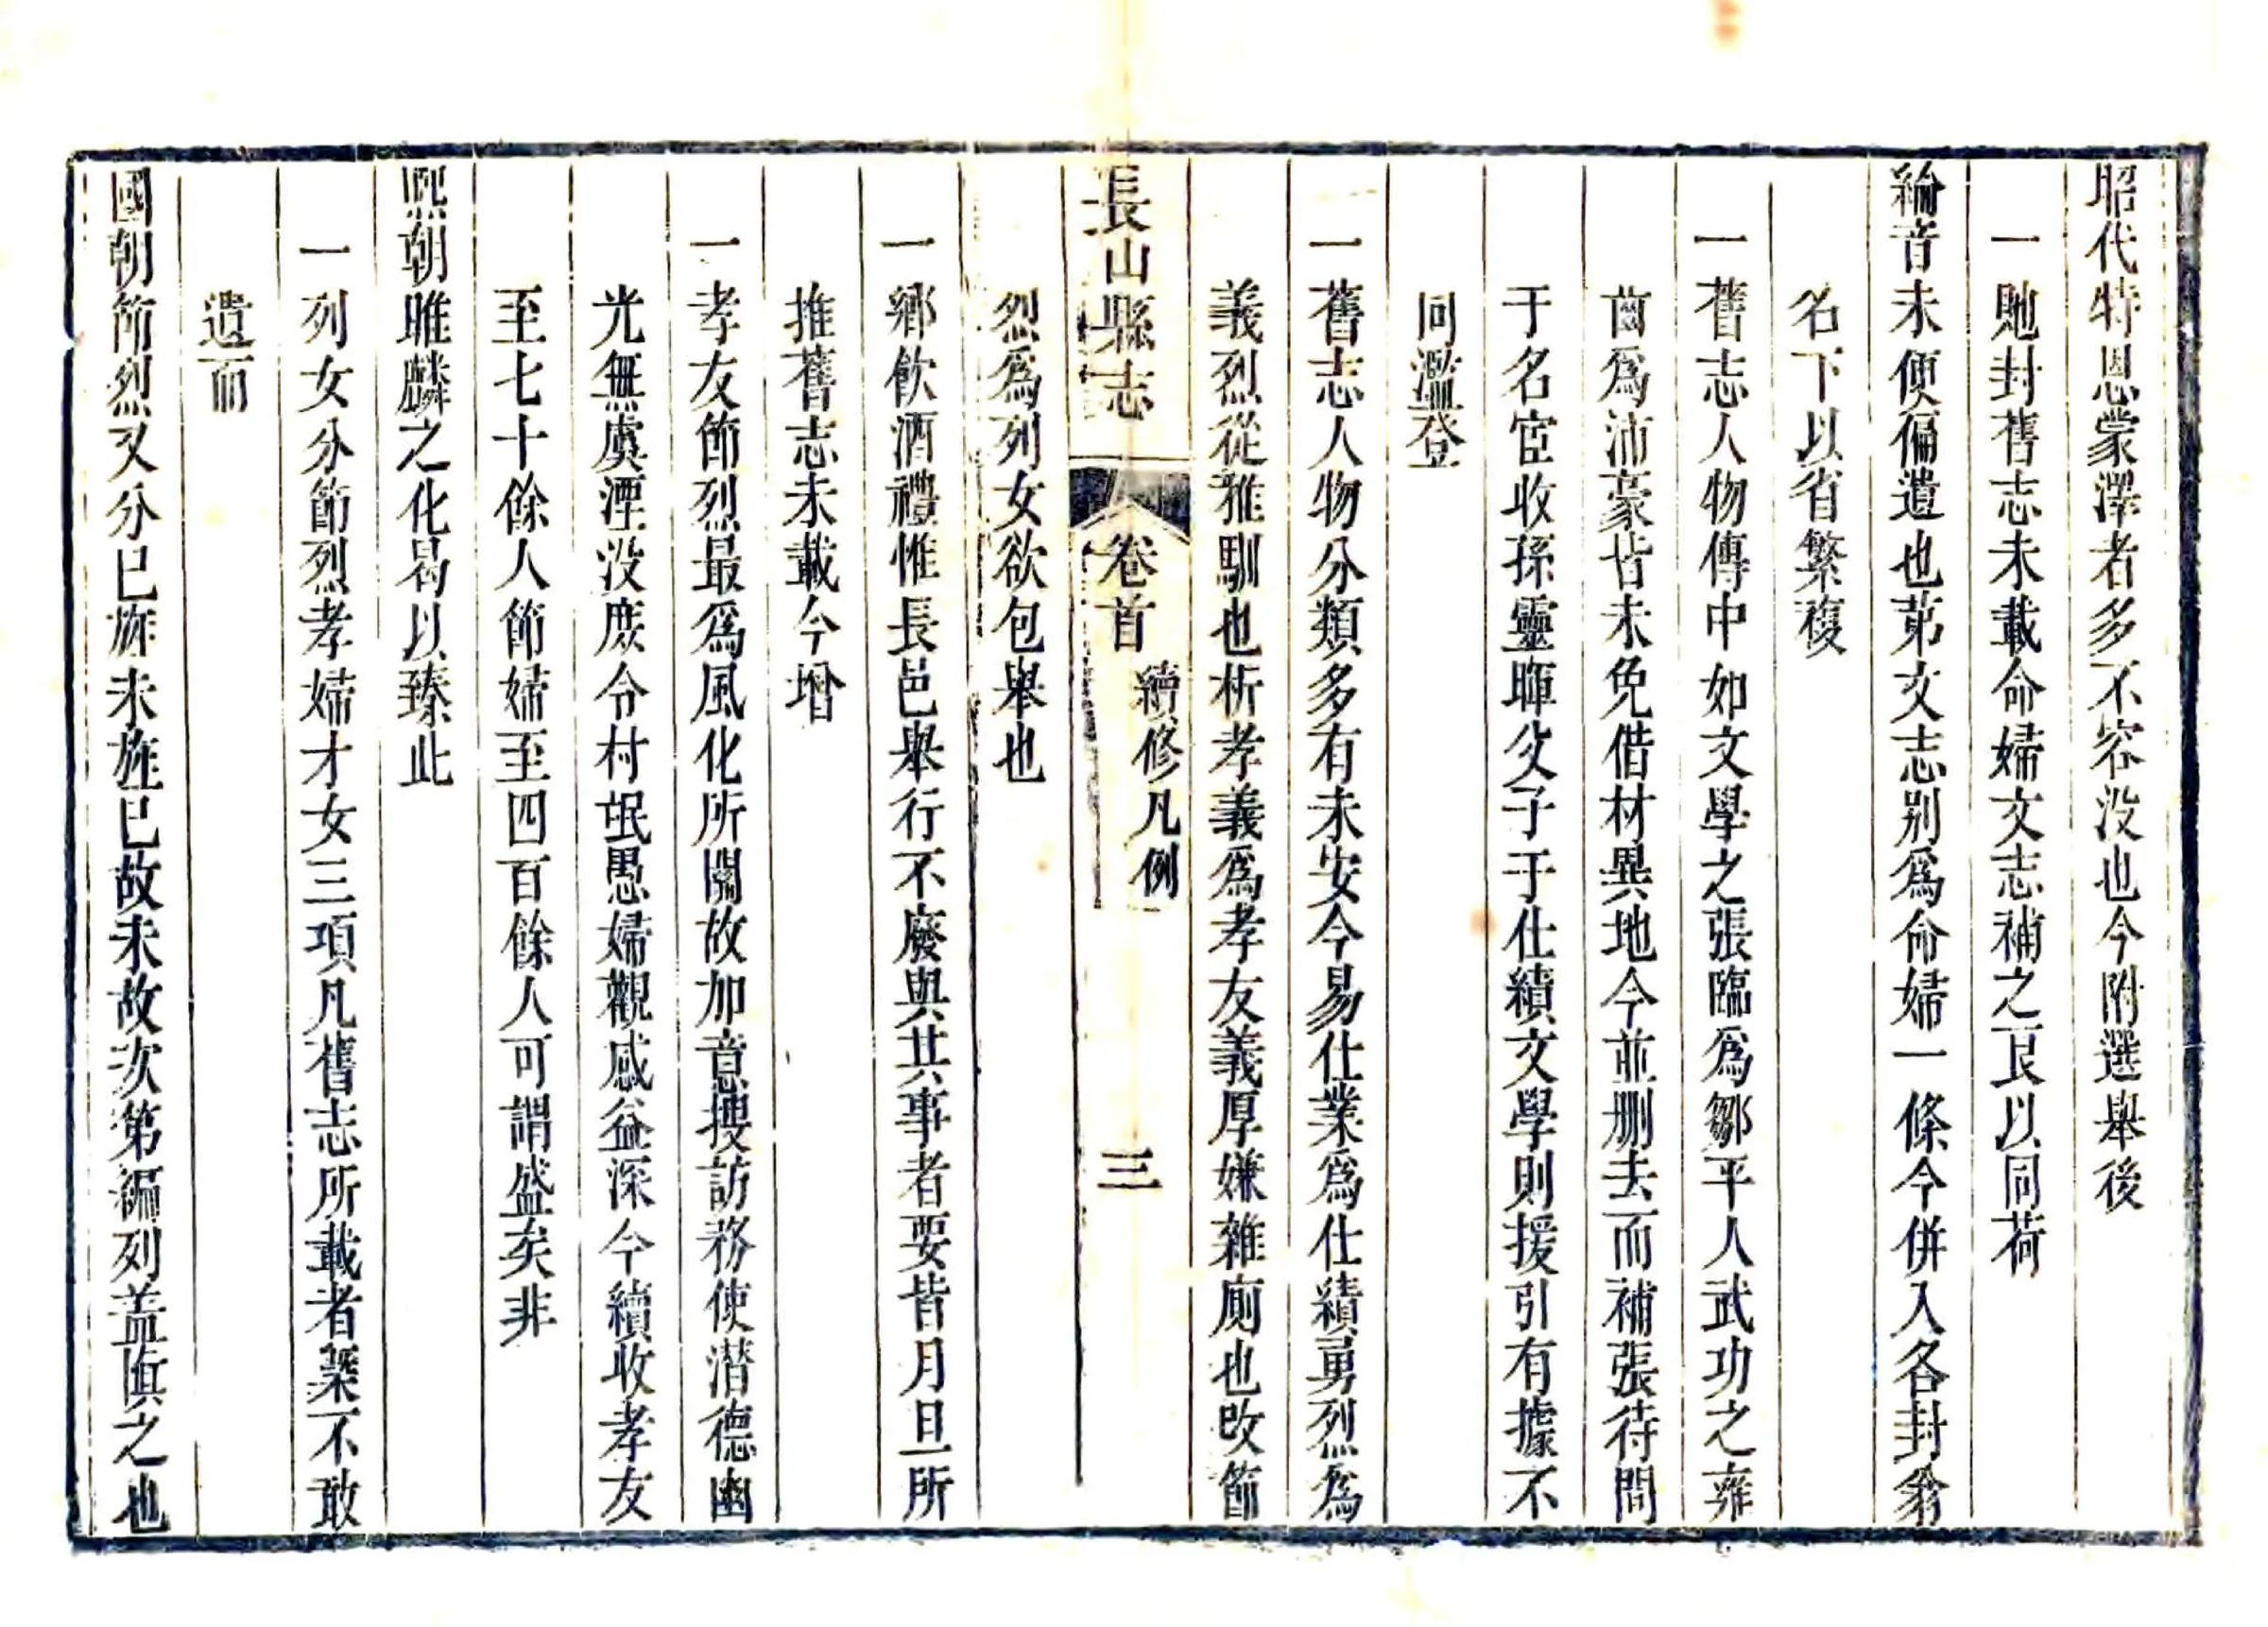 昭代特恩蒙澤者多不容没也今附選舉後
一貤封舊志未載命婦文志補之良以同荷
綸音未便偏遺也苐文志别爲命婦一條今併入各封翁
名下以省繁複
一舊志人物傳中如文學之張臨爲鄒平人武功之雍
齒爲沛豪皆未免借材異地今並刪去而補張待問
于名宦收孫靈暉父子于仕績文學則援引有據不
同濫登
一舊志人物分類多有未安今易仕業爲仕績勇烈爲
義烈從雅馴也析孝義爲孝友義厚嫌雜廁也改節
烈爲列女欲包舉也
長山縣志 卷首 續修凡例 三
一鄉飲酒禮惟長邑舉行不廢與共事者要皆月旦所
推舊志未載今增
一孝友節烈最爲風化所關故加意搜訪務使潛德幽
光無虞湮没庶令村氓愚婦觀感益深今續收孝友
至七十餘人節婦至四百餘人可謂盛矣非
熙朝雎麟之化曷以臻此
一列女分節烈孝婦才女三項凡舊志所載者槩不敢
遺而
國朝節烈又分已旌未旌已故未故次第編列盖慎之也